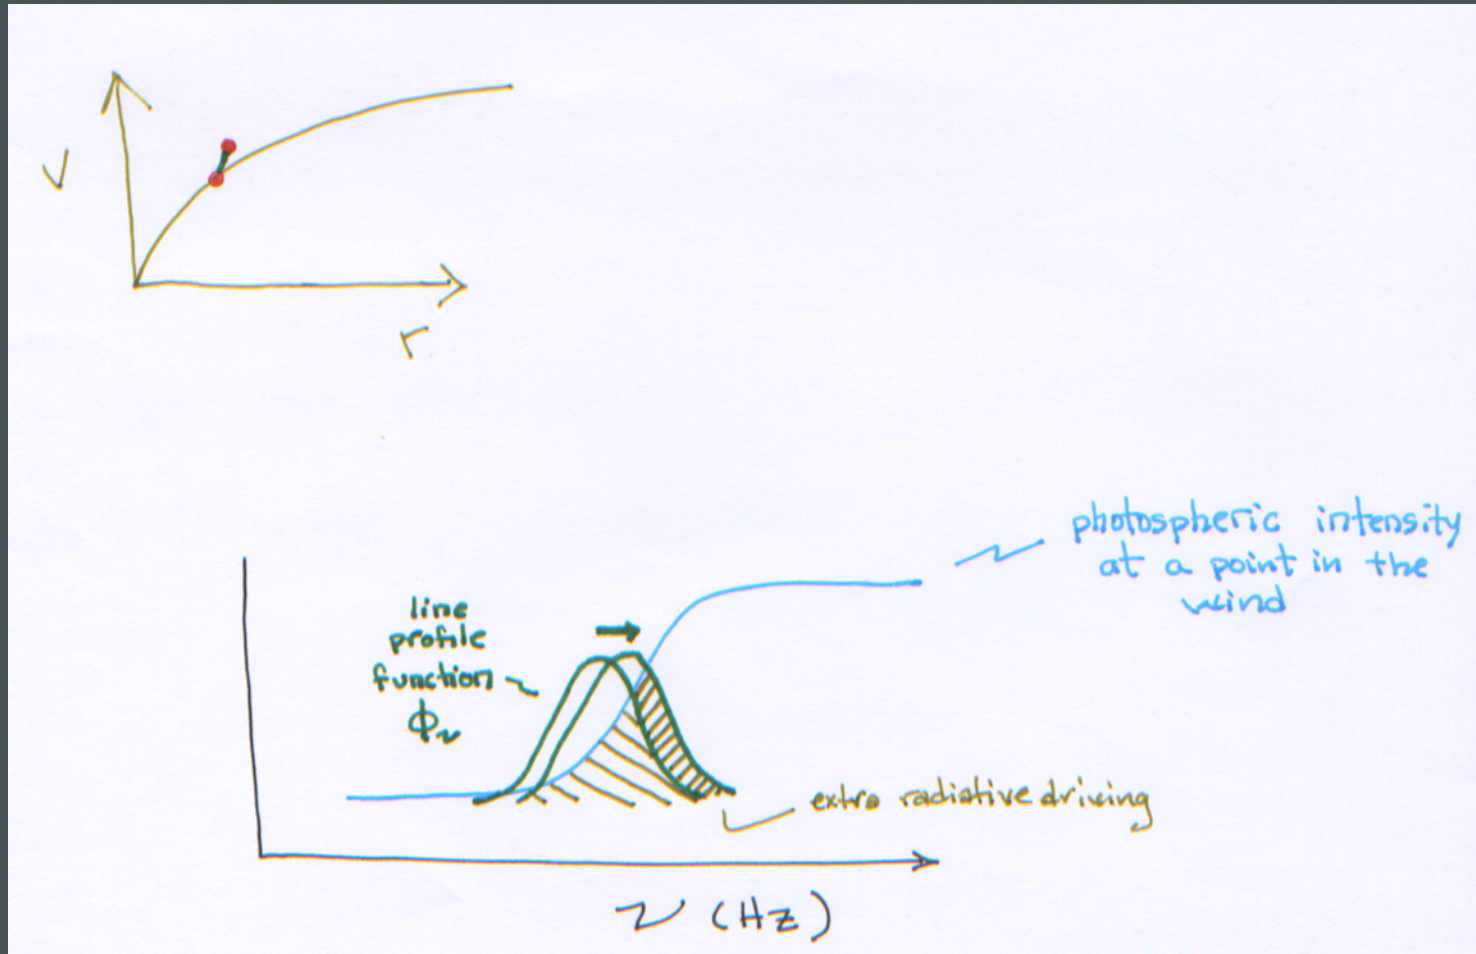 V
r
photospheric intensity
at a point in the
wind
line
profile
function
ϕν
extra radiative driving
ν (Hz)